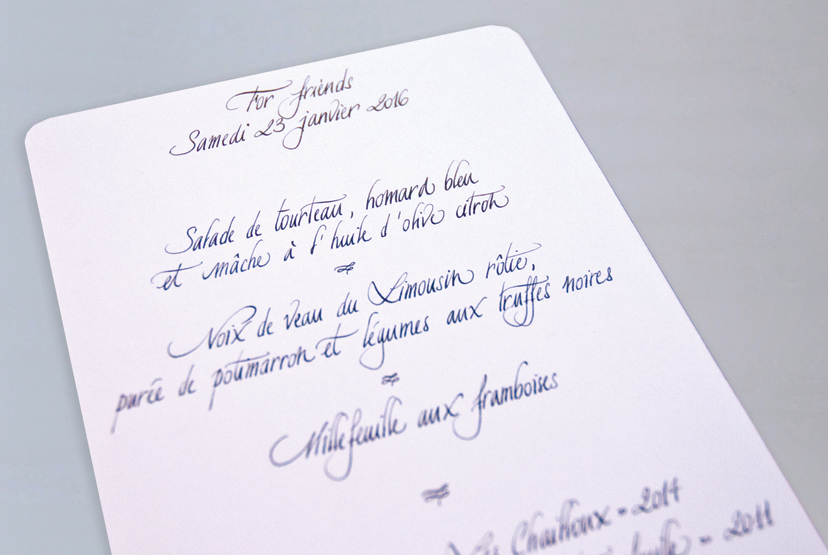 For friends
Samedi 23 janvier 2016
Salade de tourteau, homard bleu
et mâche à l'huile d'olive citron
Noix de veau du Limousin rôtie,
purée de potimarron et légumes aux truffes noires
Millefeuille aux framboises
Chailloux - 2014
- 2011